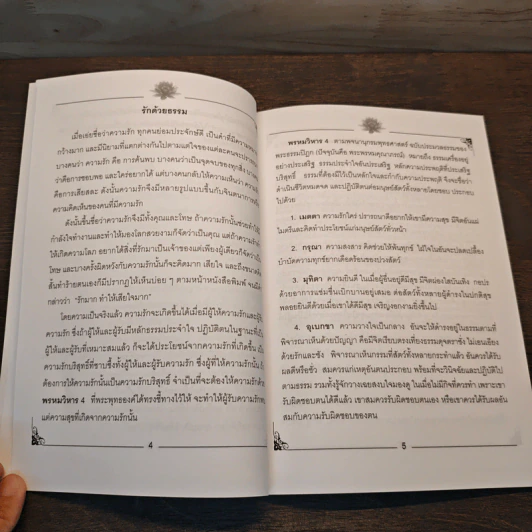 รักด้วยธรรม
เมื่อเอ่ยชื่อว่าความรัก ทุกคนย่อมประจักษ์ดี เป็นคำที่มีความ
กว้างมาก และมีนิยามที่แตกต่างกันไปตามแต่ใจของแต่ละคนจะ
บางคนว่า ความรัก คือ การค้นพบ บางคนว่าเป็นจุดจบของทุกสิ่ง บางคน
ว่าคือการชอบพอ และใคร่อยากได้ แต่บางคนกลับให้ความเห็นว่า ความ
คือการเสียสละ ดังนั้นความรักจึงมีหลายรูปแบบขึ้นกับจินตนาการ
ความคิดเห็นของคนที่มีความรัก
ดังนั้นขึ้นชื่อว่าความรักจึงมีทั้งคุณและโทษ ถ้าความรักนั้นช่วยทำ
กำลังใจทำงานและทำให้มองโลกสวยงามก็จัดว่าเป็นคุณ แต่ถ้าความรัก
ให้เกิดความโลภ อยากได้สิ่งที่รักมาเป็นเจ้าของแต่เพียงผู้เดียวก็จัดว่า
โทษ และบางครั้งผิดหวังกับความรักนั้นก็จะคิดมาก เสียใจ และถึงขนาด
สั้นทำร้ายตนเองก็มีปรากฏให้เห็นบ่อย ๆ ตามหน้าหนังสือพิมพ์ จน
กล่าวว่า "รักมาก ทำให้เสียใจมาก"
โดยความเป็นจริงแล้ว ความรักจะเกิดขึ้นได้เมื่อมีผู้ให้ความรักและ
ความรัก ซึ่งถ้าผู้ให้และผู้รับมีหลักธรรมประจำใจ ปฏิบัติตนในฐานะ
ผู้ให้และผู้รับที่เหมาะสมแล้ว ก็จะได้ประโยชน์จากความรักที่เกิดขึ้น
ความรักบริสุทธิ์ที่ซาบซึ้งทั้งผู้ให้และผู้รับความรัก ซึ่งผู้ที่ให้ความรักนั้น
ต้องการให้ความรักนั้นเป็นความรักบริสุทธิ์ จำเป็นที่จะต้องให้ความรักด้วย
พรหมวิหาร 4 ที่พระพุทธองค์ได้ทรงชี้ทางไว้ให้ จะทำให้ผู้รับความรัก
แต่ความสุขที่เกิดจากความรักนั้น
4
พรหมวิหาร 4 ตามพจนานุกรมพุทธศาสตร์ ฉบับประมวลธรรมของ
พระธรรมปิฎก (ปัจจุบันคือ พระพรหมคุณาภรณ์) หมายถึง ธรรมเครื่องอยู่
อย่างประเสริฐ ธรรมประจำใจอันประเสริฐ หลักความประพฤติที่ประเสริฐ
บริสุทธิ์ ธรรมที่ต้องมีไว้เป็นหลักใจและกำกับความประพฤติ จึงจะชื่อว่า
ดำเนินชีวิตหมดจด และปฏิบัติตนต่อมนุษย์สัตว์ทั้งหลายโดยชอบ ประกอบ
ไปด้วย
1. เมตตา ความรักใคร่ ปรารถนาดีอยากให้เขามีความสุข มีจิตอันแผ่
ไมตรีและคิดทำประโยชน์แก่มนุษย์สัตว์ทั่วหน้า
2. กรุณา ความสงสาร คิดช่วยให้พ้นทุกข์ ใฝ่ใจในอันจะปลดเปลื้อง
บำบัดความทุกข์ยากเดือดร้อนของปวงสัตว์
3. มุทิตา ความยินดี ในเมื่อผู้อื่นอยู่ดีมีสุข มีจิตผ่องใสบันเทิง กอปร
ด้วยอาการแช่มชื่นเบิกบานอยู่เสมอ ต่อสัตว์ทั้งหลายผู้ดำรงในปกติสุข
พลอยยินดีด้วยเมื่อเขาได้ดีมีสุข เจริญงอกงามยิ่งขึ้นไป
4. อุเบกขา ความวางใจเป็นกลาง อันจะให้ดำรงอยู่ในธรรมตามที่
พิจารณาเห็นด้วยปัญญา คือมีจิตเรียบตรงเที่ยงธรรมดุจตราชั่ง ไม่เอนเอียง
ด้วยรักและชัง พิจารณาเห็นกรรมที่สัตว์ทั้งหลายกระทำแล้ว อันควรได้รับ
ผลดีหรือชั่ว สมควรแก่เหตุอันตนประกอบ พร้อมที่จะวินิจฉัยและปฏิบัติไป
ตามธรรม รวมทั้งรู้จักวางเฉยสงบใจมองดู ในเมื่อไม่มีกิจที่ควรทำ เพราะเขา
รับผิดชอบตนได้ดีแล้ว เขาสมควรรับผิดชอบตนเอง หรือเขาควรได้รับผลอัน
สมกับความรับผิดชอบของตน
5